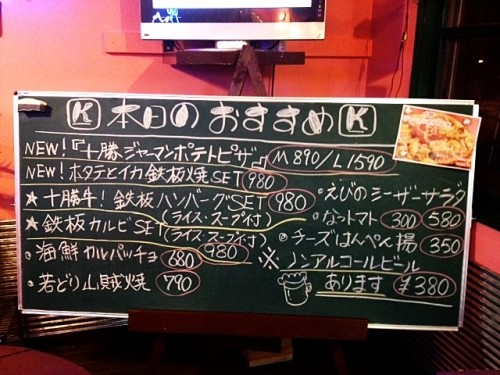 K 本日のおすすめ K
NEW!『十勝ジャーマンポテトピザ』 M 890/L 1590
NEW! ホタテとイカ鉄板焼SET 980
★十勝牛!鉄板ハンバーグSET 980
(ライス・スープ付)
★鉄板カルビSET 980
(ライス・スープ付)
・海鮮カルパッチョ 680
・若どり山賊焼 790
・えびのシーザーサラダ 580
・なっトマト 300
・チーズはんぺん揚 350
※ノンアルコールビール
あります ¥380